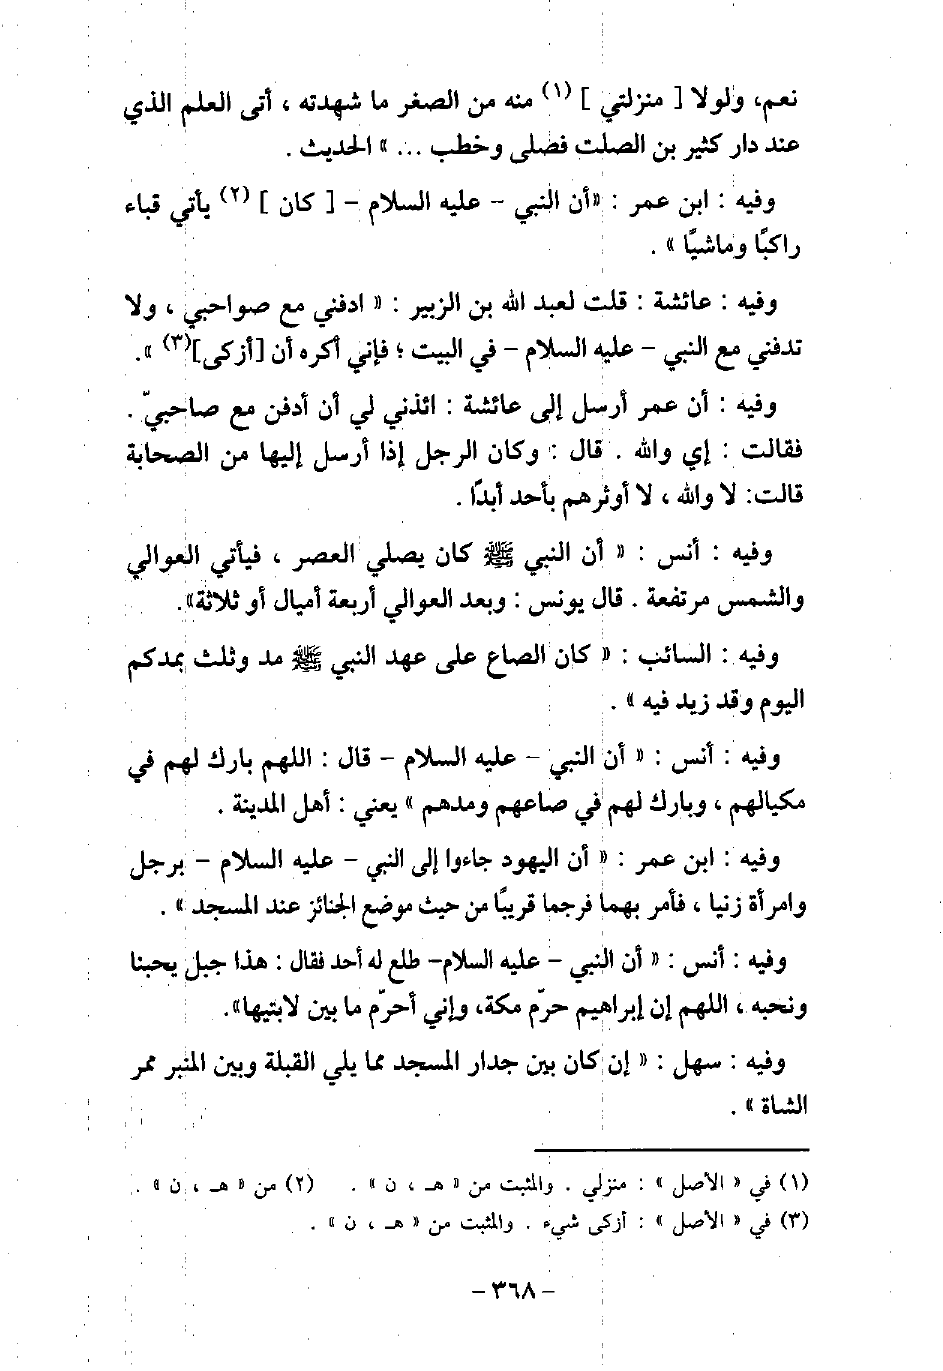 نعم، ولولا [ منزلتي ] (١) منه من الصغر ما شهدته ، أتى العلم الذي
عند دار كثير بن الصلت فصلى وخطب ... » الحديث .
وفيه : ابن عمر : «أن النبي – عليه السلام – [ كان ] (٢) يأتي قباء
راكبًا وماشيًا » .
وفيه : عائشة : قلت لعبد الله بن الزبير : « ادفني مع صواحبي ، ولا
تدفني مع النبي – عليه السلام – في البيت ؛ فإني أكره أن [أزكى](٣) ».
وفيه : أن عمر أرسل إلى عائشة : ائذني لي أن أدفن مع صاحبيّ .
فقالت : إي والله . قال : وكان الرجل إذا أرسل إليها من الصحابة
قالت: لا والله ، لا أوثرهم بأحد أبدًا .
وفيه : أنس : « أن النبي ﷺ كان يصلي العصر ، فيأتي العوالي
والشمس مرتفعة . قال يونس : وبعد العوالي أربعة أميال أو ثلاثة».
وفيه : السائب : « كان الصاع على عهد النبي ﷺ مد وثلث بمدكم
اليوم وقد زيد فيه » .
وفيه : أنس : « أن النبي – عليه السلام – قال : اللهم بارك لهم في
مكيالهم ، وبارك لهم في صاعهم ومدهم » يعني : أهل المدينة .
وفيه : ابن عمر : « أن اليهود جاءوا إلى النبي – عليه السلام – برجل
وامرأة زنيا ، فأمر بهما فرجما قريبًا من حيث موضع الجنائز عند المسجد » .
وفيه : أنس : « أن النبي – عليه السلام– طلع له أحد فقال : هذا جبل يحبنا
ونحبه ، اللهم إن إبراهيم حرّم مكة، وإني أحرّم ما بين لابتيها».
وفيه : سهل : « إن كان بين جدار المسجد مما يلي القبلة وبين المنبر ممر
الشاة » .
(١) في « الأصل » : منزلي . والمثبت من « هـ ، ن » . (٢) من « هـ ، ن » .
(٣) في « الأصل » : أزكى شيء . والمثبت من « هـ ، ن » .
– ٣٦٨ –